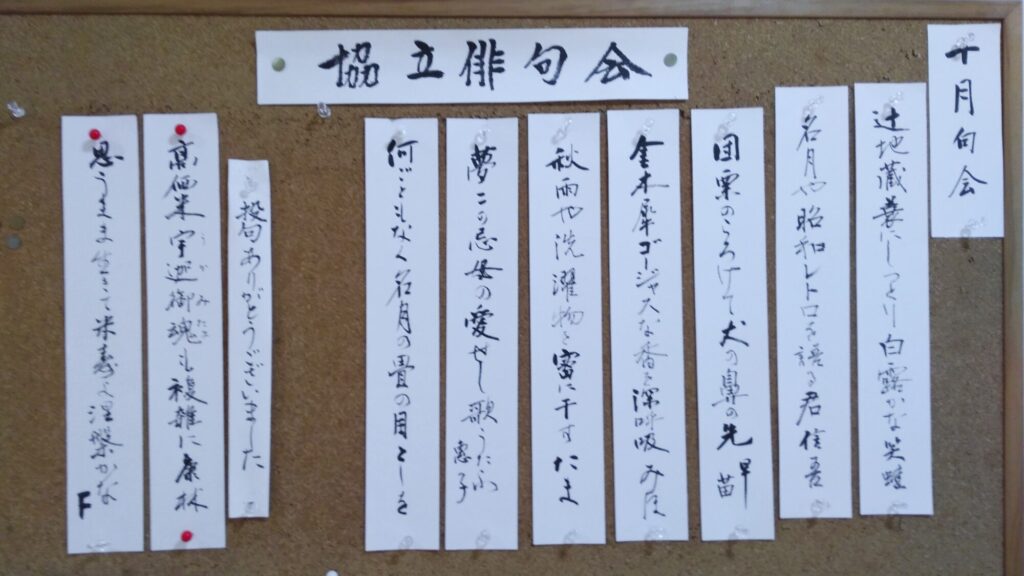 協立俳句会
十月句会
辻地蔵巻にしっとり白露かな 笑蛙
名月や昭和レトロを語る君 信吾
団栗のころげて犬の鼻の先 早苗
金木犀ゴージャスな香を深呼吸 みほ
秋雨や洗濯物を窓に干す たま
夢二の忌母の愛せし歌うたふ 恵子
何ごともなく名月の畳の目 としを
投句ありがとうございました
高価米宇迦御魂も複雑に 康林
うがみたま
思うまま生きて米寿へ涅槃かな F